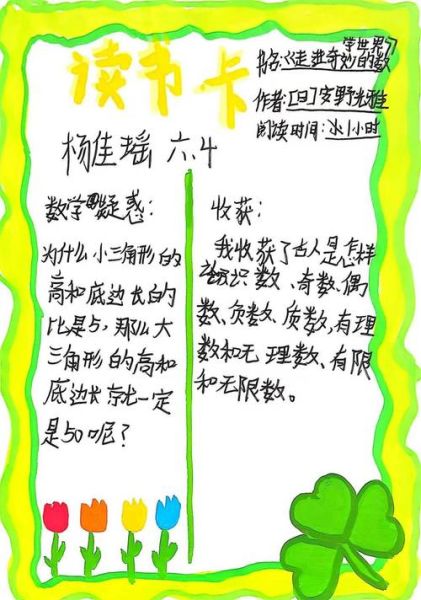 读书卡
书名:《走进奇妙的数
学世界》
作者:[日]安野光雅
阅读时间:1小时
杨佳瑶 六.4
数学疑惑:
为什么小三角形的
高和底边长的
比是5,那么大
三角形的高和
底边长就一定
是50呢?
收获:
我收获了古人是怎样
认识数、奇数、偶
数、负数、质数,有理
数和无理数、有限
和无限数。